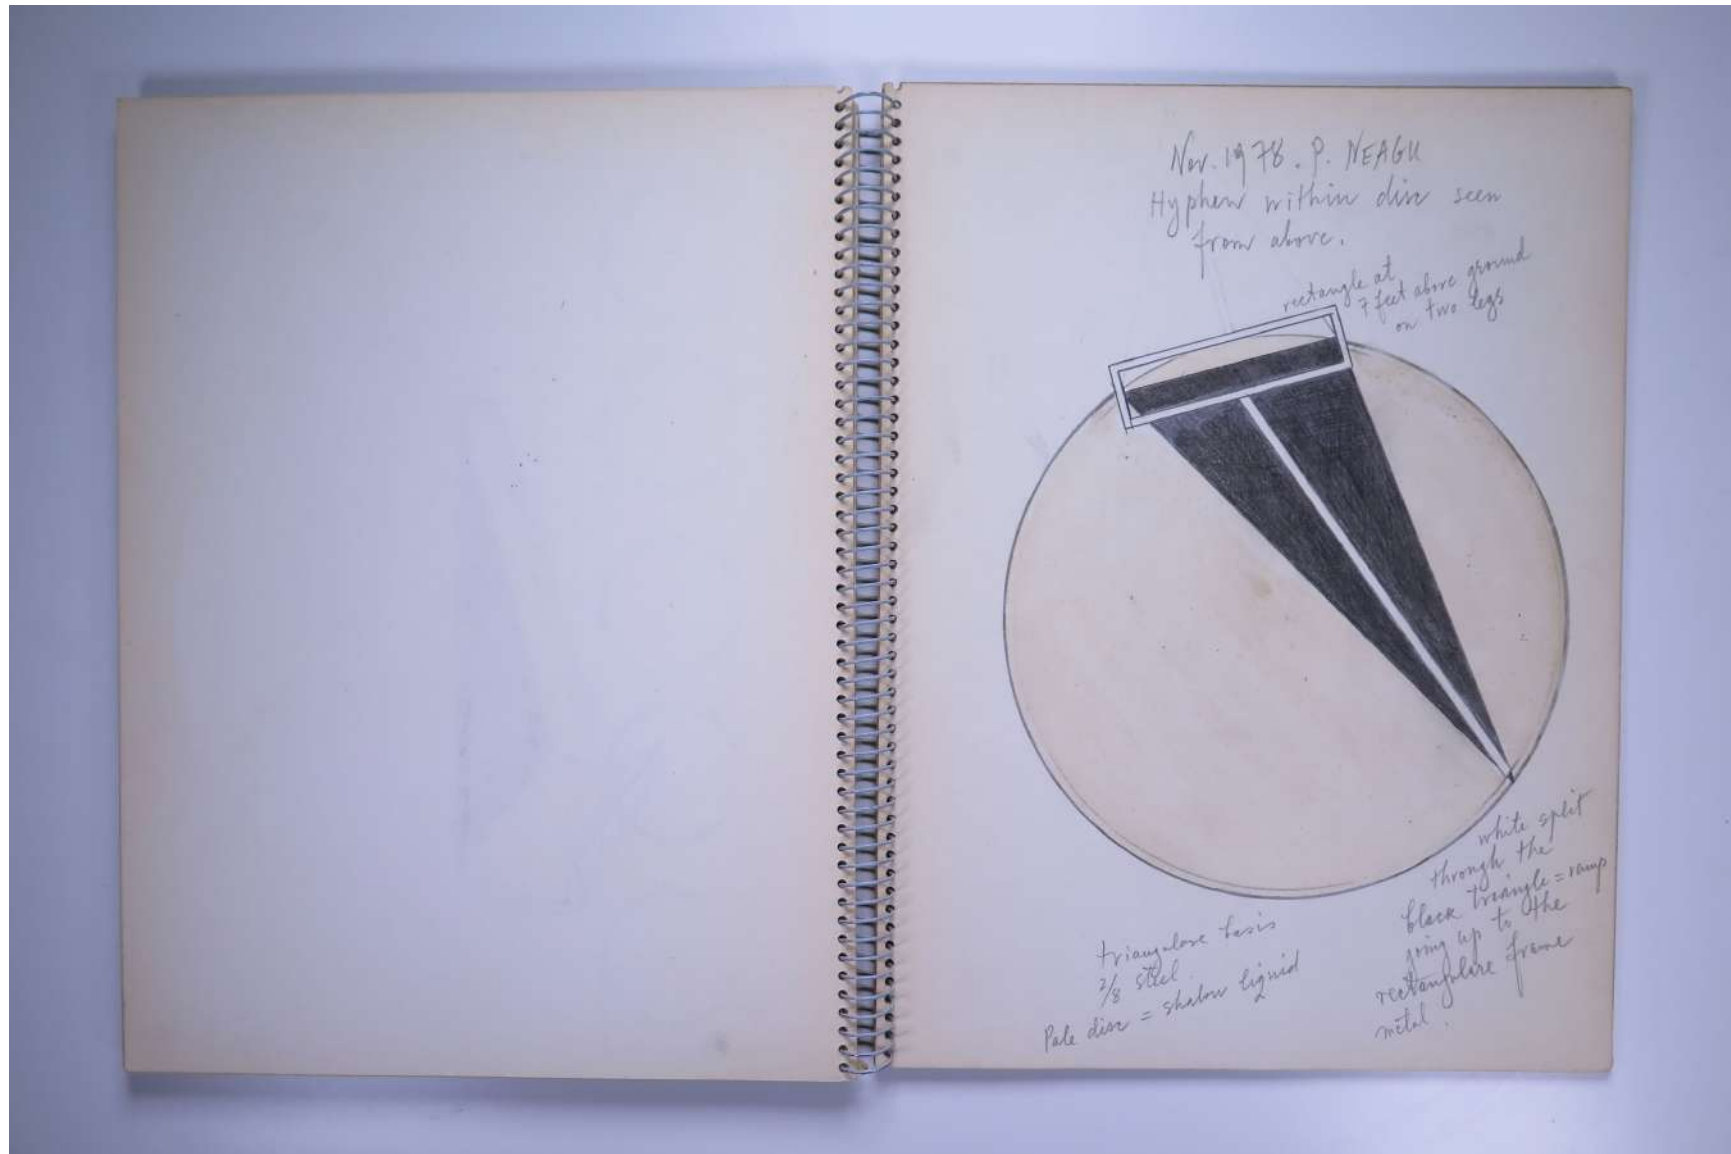 Nov. 1978. P. NEAGU
Hyphen within disc seen
from above.
rectangle at
7 feet above ground
on two legs
white split
through the
black triangle = ramp
going up to the
rectangulare frame
metal.
triangulare basis
2/8 steel.
Pale disc = shalow liquid